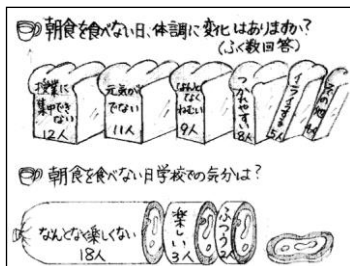 朝食を食べない日、体調に変化はありますか?
(ふく数回答)
授業に
集中できない
12人
元気が
でない
11人
なんと
なく
ねむい
9人
つかれやすい
8人
イライラする
5人
その他
朝食を食べない日学校での気分は?
なんとなく楽しくない
18人
楽しい
3人
ふつう
2人